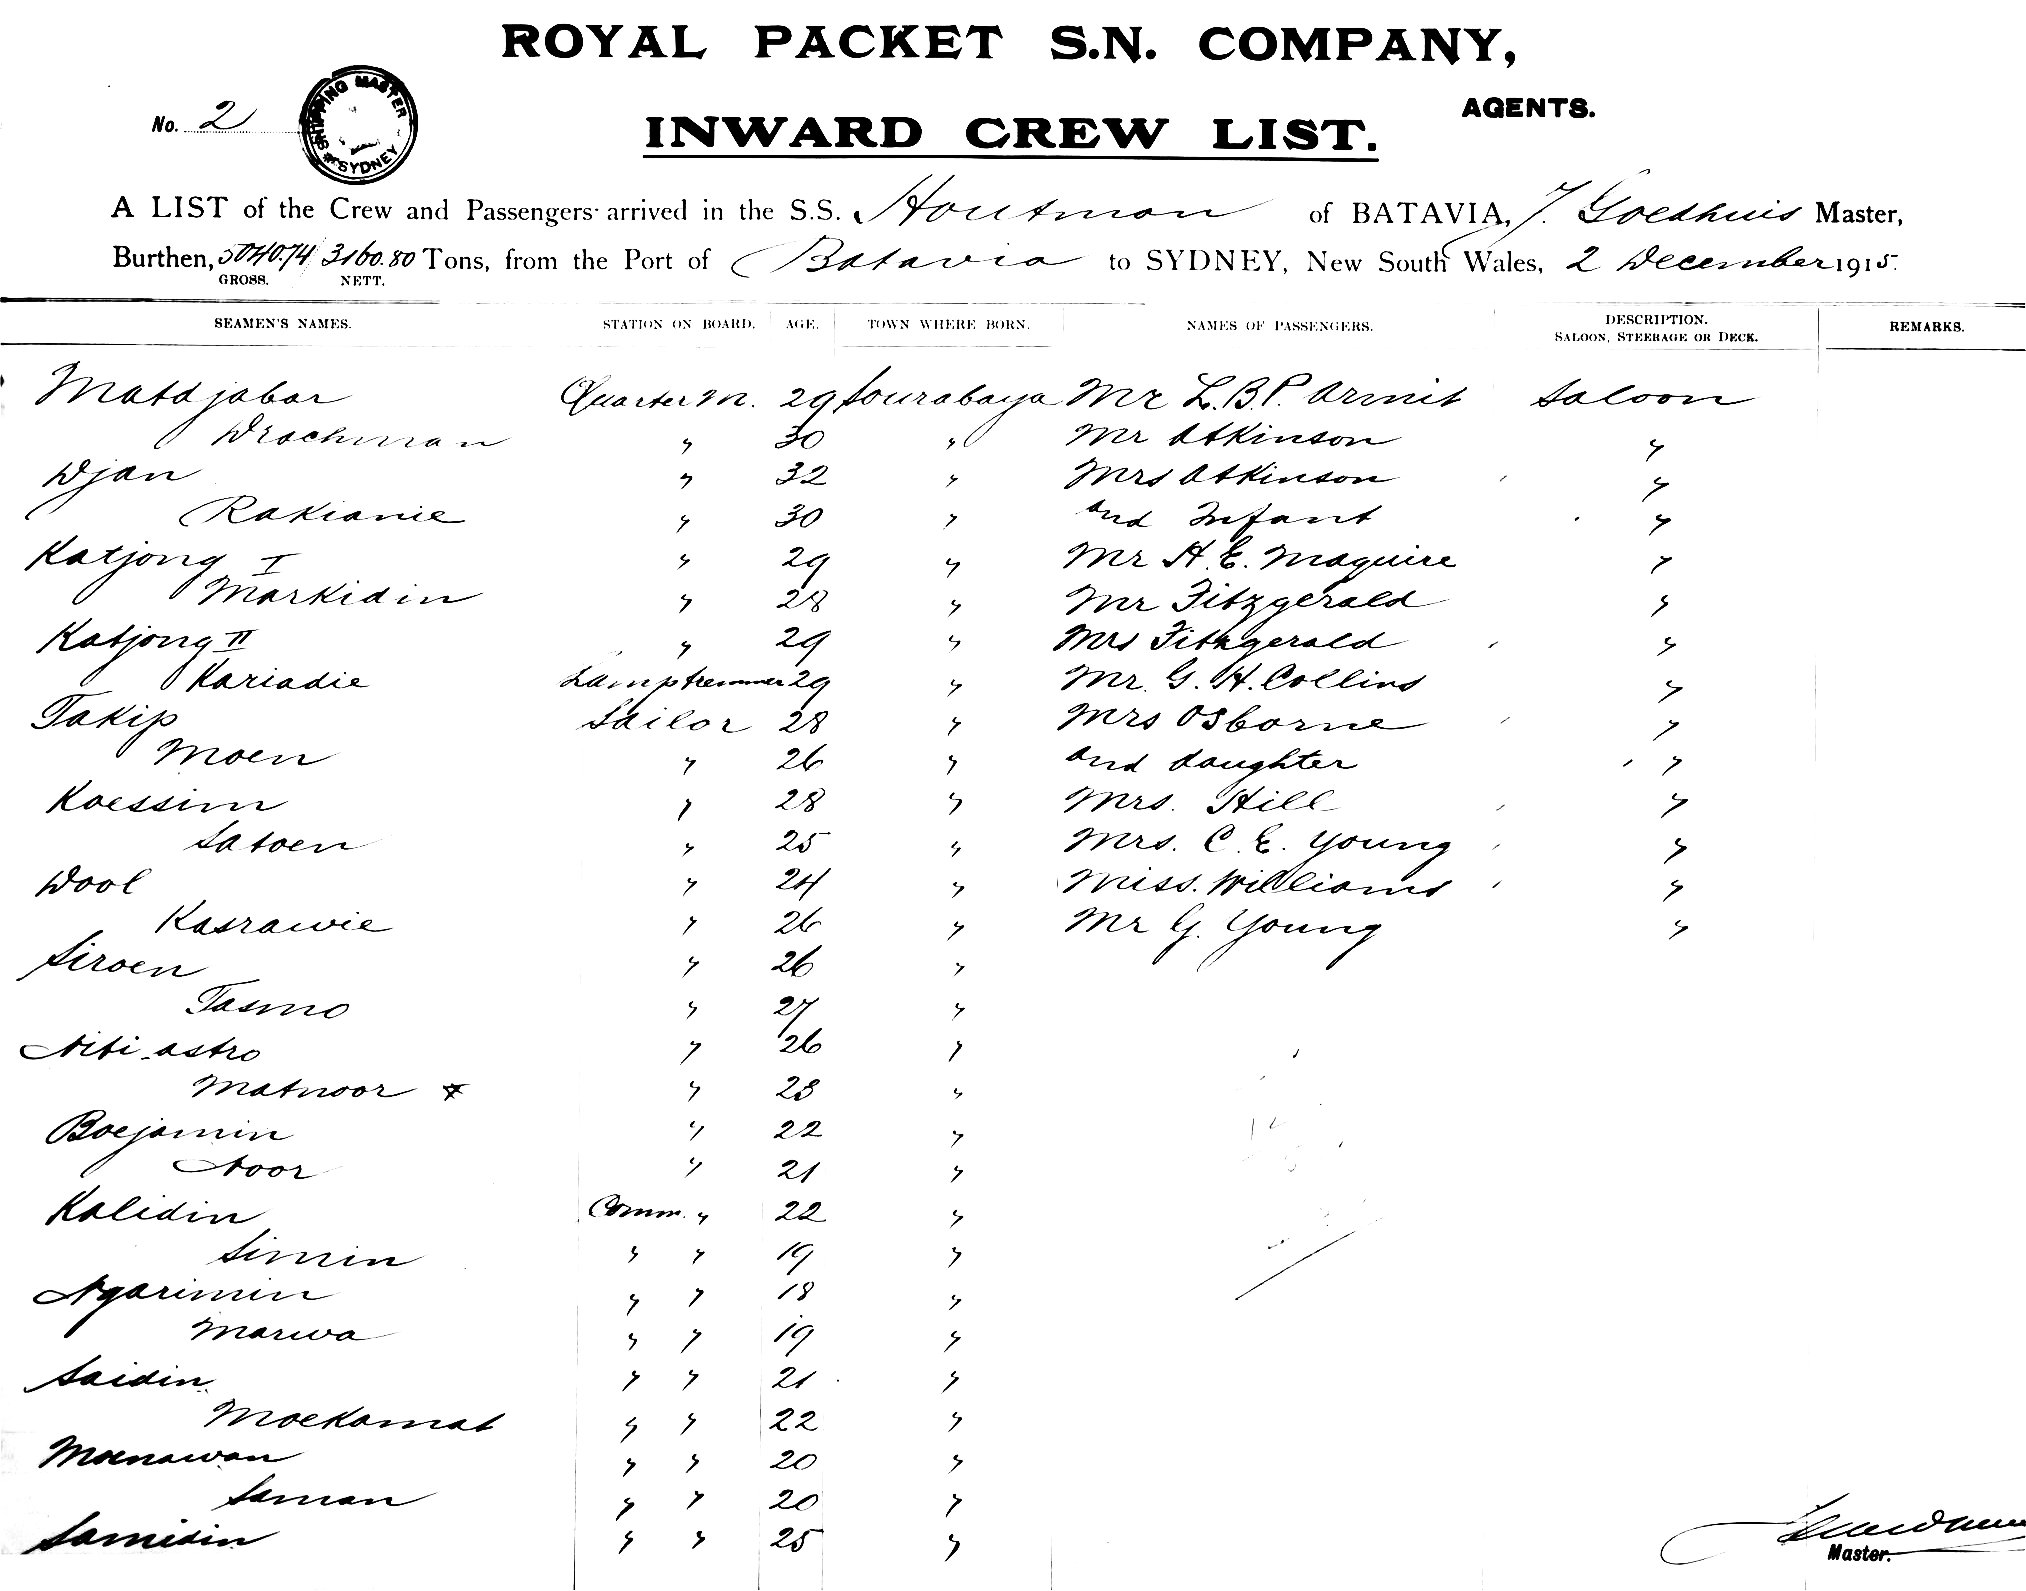 ROYAL PACKET S.N. COMPANY,
AGENTS.
No. 2
SHIPPING MASTER SYDNEY
INWARD CREW LIST.
A LIST of the Crew and Passengers arrived in the S.S. Houtman of BATAVIA, J. Goedhuis Master,
Burthen, 5040.74 3160.80 Tons, from the Port of Batavia to SYDNEY, New South Wales, 2 December 1915.
GROSS. NETT.
SEAMEN'S NAMES. STATION ON BOARD. AGE. TOWN WHERE BORN. NAMES OF PASSENGERS. DESCRIPTION. SALOON, STEERAGE OR DECK. REMARKS.
Matdjabar Quarter M. 29 Sourabaya Mr L.B.P. Armit Saloon
Drachman " 30 " Mr Atkinson "
Djan " 32 " Mrs Atkinson "
Rakianie " 30 " and Infant "
Katjong I " 29 " Mr H. E. Maguire "
Markidin " 28 " Mr Fitzgerald "
Katjong II " 29 " Mrs Fitzgerald "
Kariadie Lamptremmer 29 " Mr. G. H. Collins "
Takip Sailor 28 " Mrs Osborne "
Moen " 26 " and daughter "
Koessim " 28 " Mrs. Hill "
Satoen " 25 " Mrs. C. E. Young "
Dool " 24 " Miss. Williams "
Kasrawie " 26 " Mr G. Young "
Siroen " 26 "
Tasmo " 27 "
Niti astro " 26 "
Matnoor " 23 "
Boejamin " 22 "
Noor " 21 "
Kalidin Comm. " 22 "
Simin " " 19 "
Ngarimin " " 18 "
Marwa " " 19 "
Saidin " " 21 "
Moekamat " " 22 "
Moenawan " " 20 "
Saman " " 20 "
Samidin " " 25 "
Master.